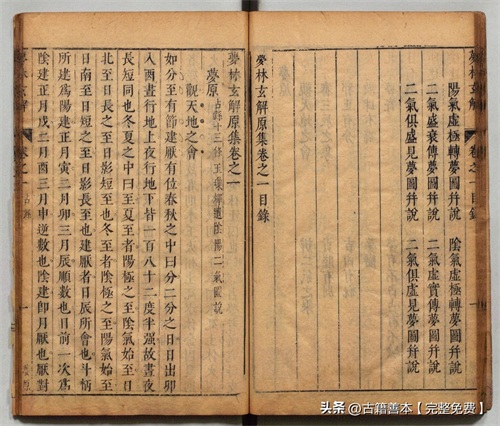 夢林玄解 卷之一目錄
陽氣虛極轉夢圖幷說 陰氣虛極轉夢圖幷說
二氣盛衰傳夢圖幷說 二氣虛實傳夢圖幷說
二氣俱盛見夢圖幷說 二氣俱虛見夢圖幷說
夢林玄解原集卷之一目錄
夢林玄解原集卷之一
夢原 十三 陰陽二氣圖說
觀天地之會
如分至有節建厭有位春秋之中曰分二分之日日出卯
入酉晝行地上夜行地下皆一百八十二度半强故晝夜
長短同也冬夏之中曰至夏至者陽極之至陰氣始至日
北至日長之至日影短至也冬至者陰極之至陽氣始至
日南至日短之至日影長至也建厭者日辰所會也斗柄
所建爲陽建正月寅二月卯三月辰順數也日前一次爲
陰建正月戌二月酉三月申逆數也陰建卽月厭也厭對
夢林玄解 卷之一
头条 @古籍善本【完整免费】